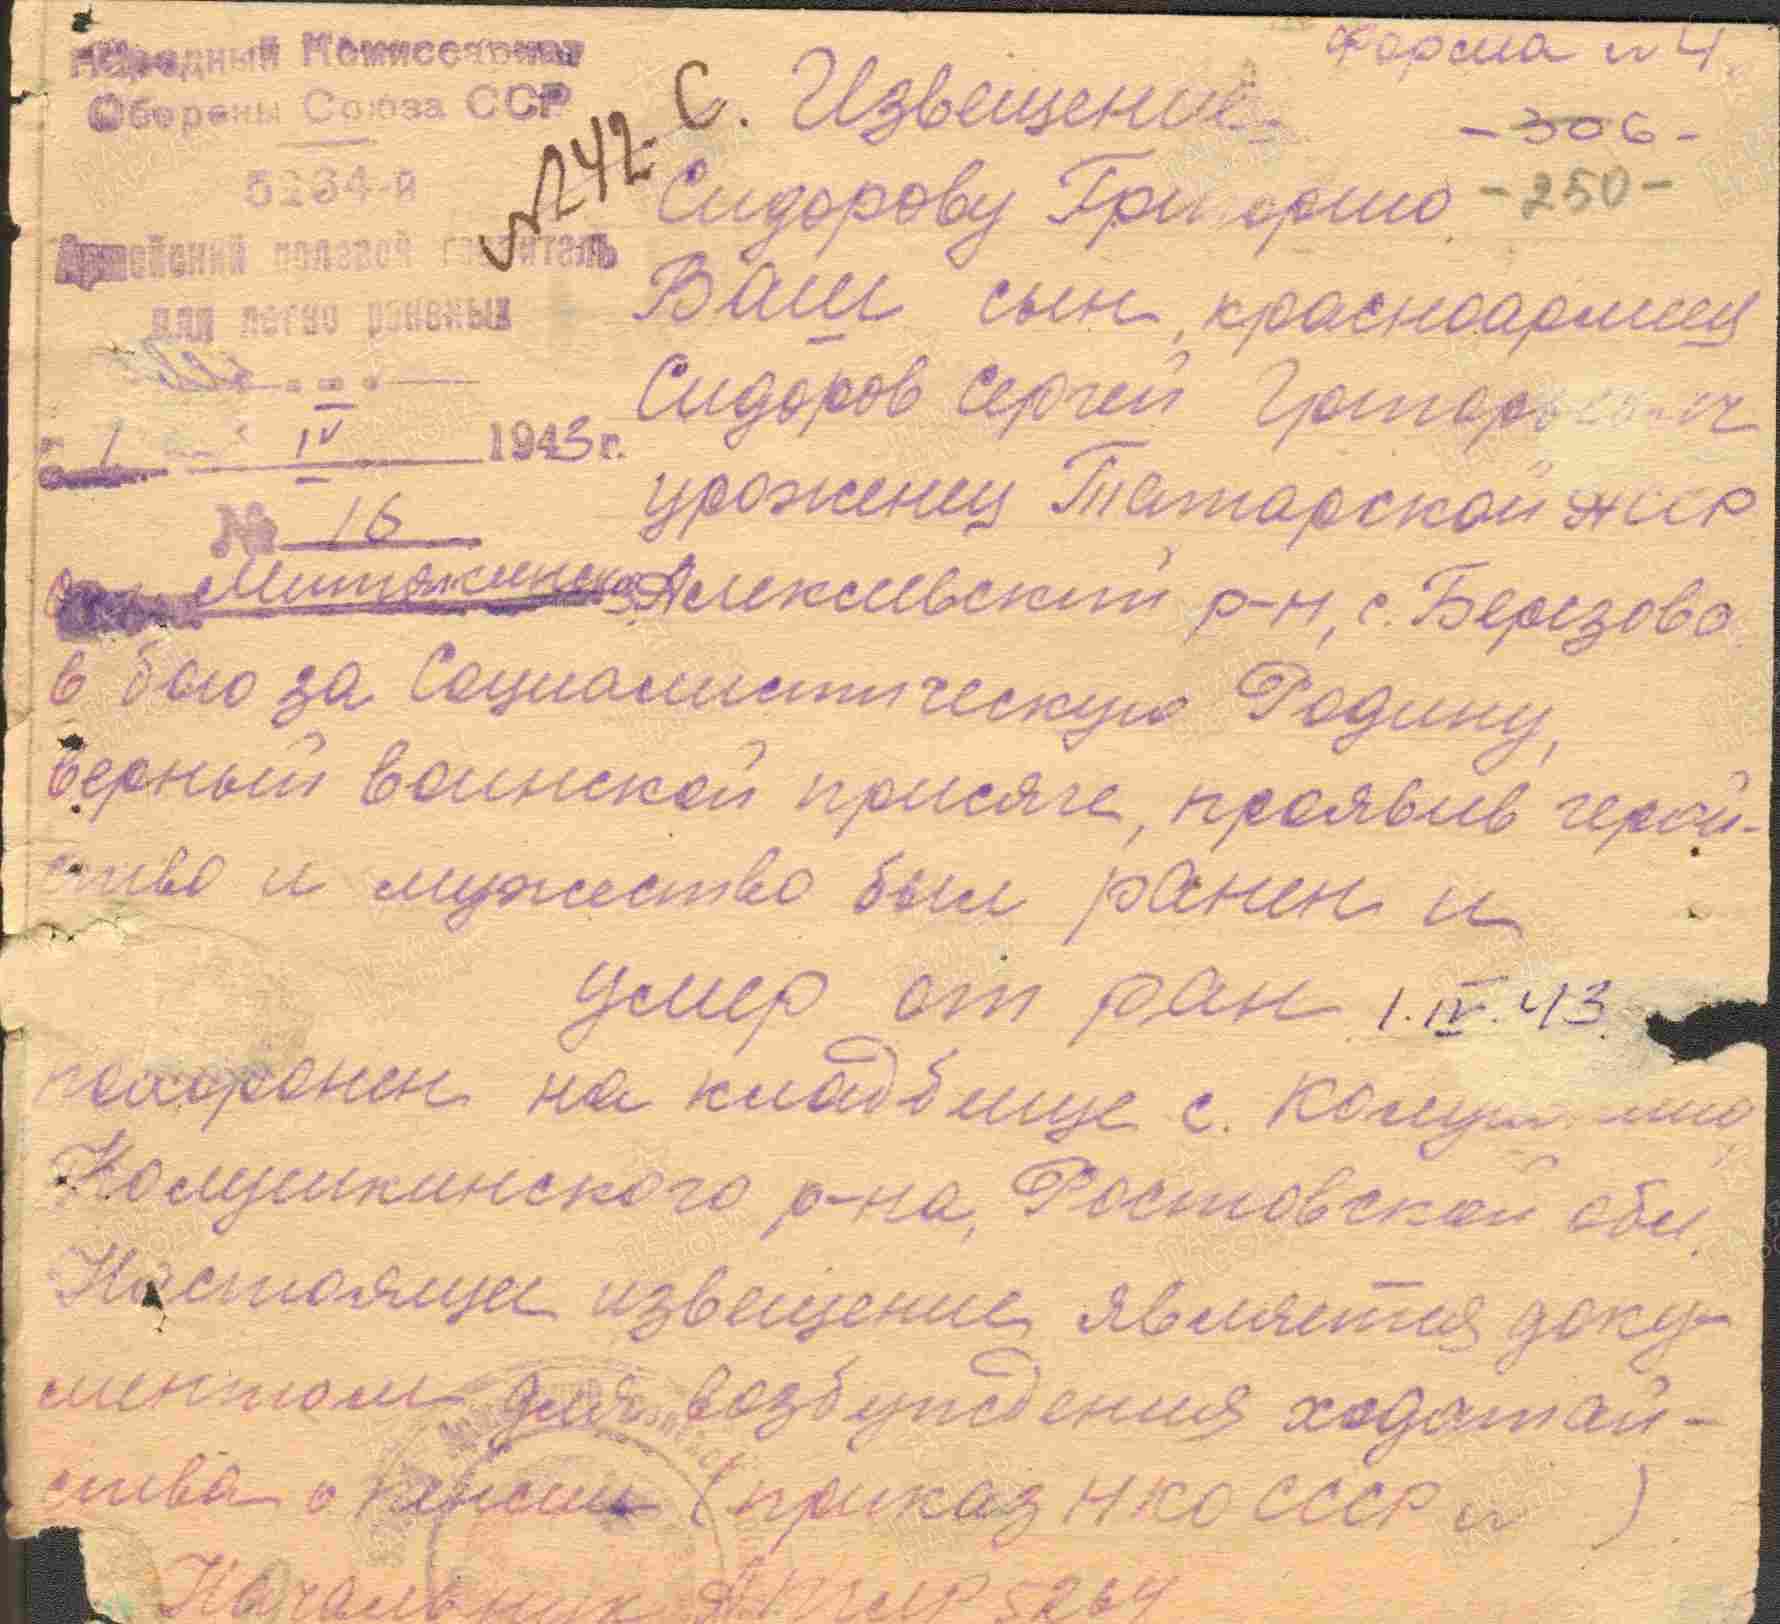 Народный Комиссариат
Обороны Союза ССР
5264-й
Армейский полевой госпиталь
для легко раненых
"1" IV 1943 г.
№ 16
Форма № 4
№242
С. Извещение
-306-
-250-
Сидорову Григорию
Ваш сын, красноармеец
Сидоров Сергей Григорьевич
уроженец Татарской АССР
Алексеевский р-н, с. Березово
в бою за Социалистическую Родину,
верный воинской присяге, проявив герой-
ство и мужество был ранен и
умер от ран 1.IV.43
похоронен на кладбище с.
Колушкинского р-на, Ростовской обл.
Настоящее извещение является доку-
ментом для возбуждения ходатай-
ства о пенсии (приказ НКО СССР № )
Начальник 5264